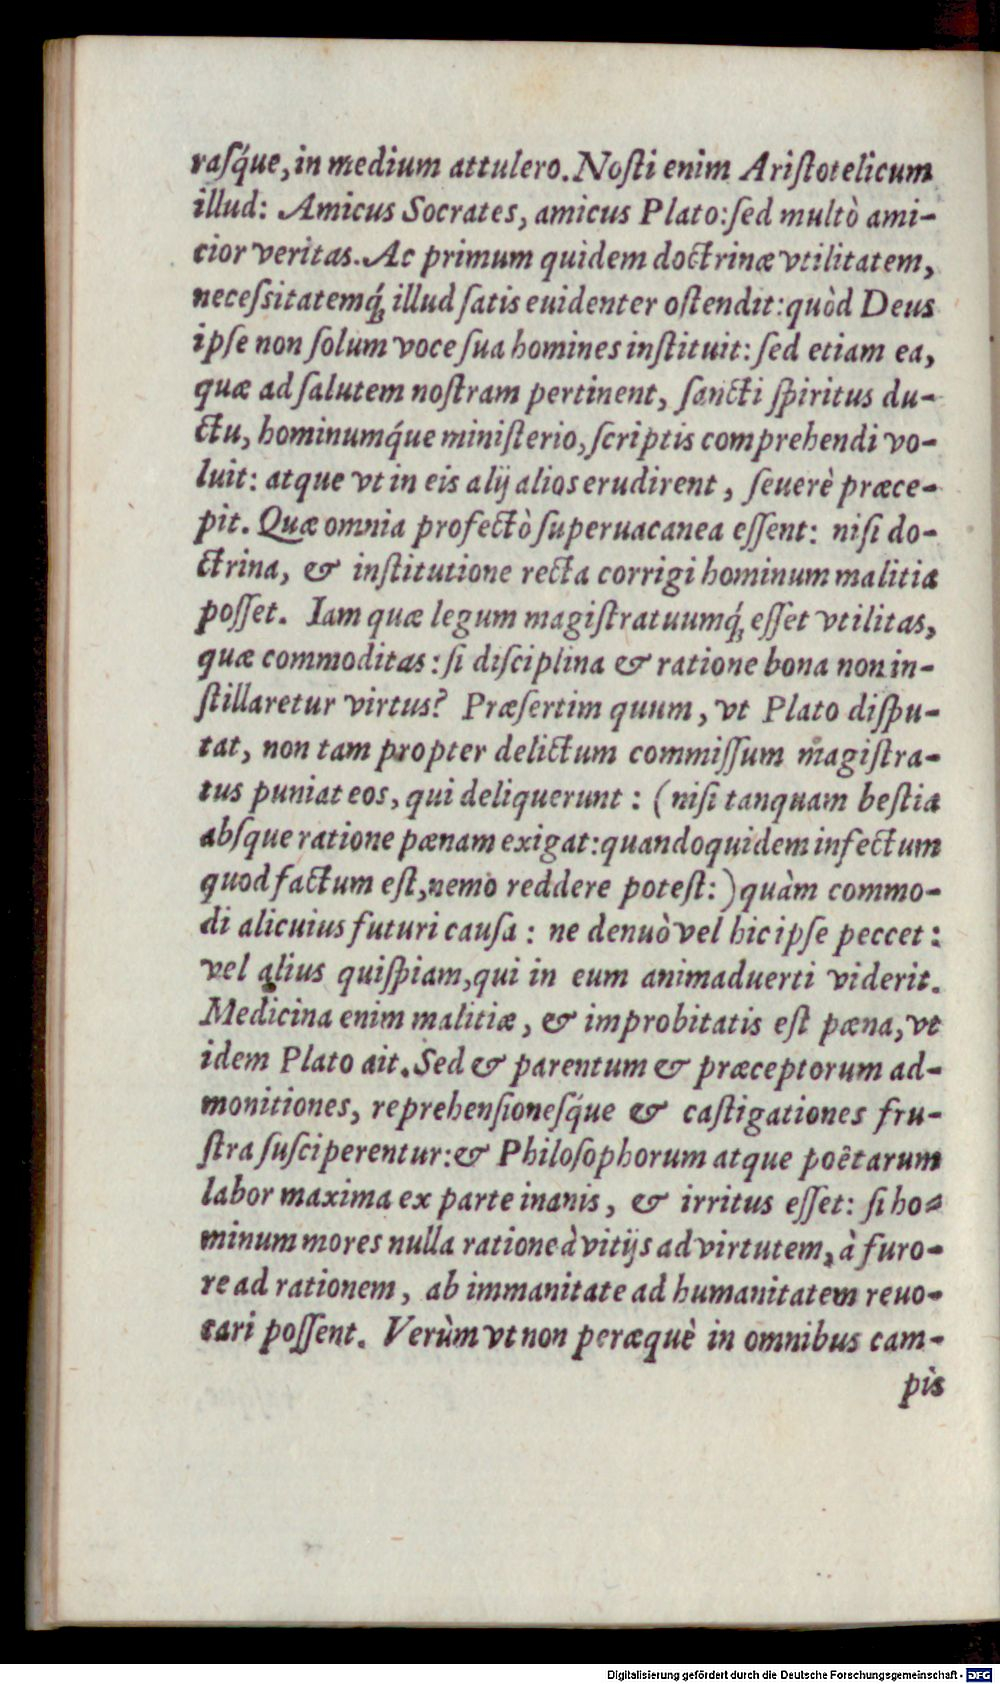 raſq́ue, in medium attulero. Noſti enim Ariſtotelicum
illud: Amicus Socrates, amicus Plato: ſed multò ami-
cior veritas. Ac primum quidem doctrinæ vtilitatem,
neceſsitatemq́; illud ſatis euidenter oſtendit: quòd Deus
ipſe non ſolum voce ſua homines inſtituit: ſed etiam ea,
quæ ad ſalutem noſtram pertinent, ſancti ſpiritus du-
ctu, hominumq́ue miniſterio, ſcriptis comprehendi vo-
luit: atque vt in eis alij alios erudirent, ſeuerè præce-
pit. Quæ omnia profectò ſuperuacanea eſſent: niſi do-
ctrina, & inſtitutione recta corrigi hominum malitia
poſſet. Iam quæ legum magiſtratuumq́; eſſet vtilitas,
quæ commoditas: ſi diſciplina & ratione bona non in-
ſtillaretur virtus? Præſertim quum, vt Plato diſpu-
tat, non tam propter delictum commiſſum magiſtra-
tus puniat eos, qui deliquerunt: (niſi tanquam beſtia
abſque ratione pœnam exigat: quandoquidem infectum
quod factum eſt, nemo reddere poteſt:) quàm commo-
di alicuius futuri cauſa: ne denuò vel hic ipſe peccet:
vel alius quiſpiam, qui in eum animaduerti viderit.
Medicina enim malitiæ, & improbitatis eſt pœna, vt
idem Plato ait. Sed & parentum & præceptorum ad-
monitiones, reprehenſioneſq́ue & caſtigationes fru-
ſtra ſuſciperentur: & Philoſophorum atque poêtarum
labor maxima ex parte inanis, & irritus eſſet: ſi ho-
minum mores nulla ratione à vitijs ad virtutem, à furo-
re ad rationem, ab immanitate ad humanitatem reuo-
cari poſſent. Verùm vt non peræquè in omnibus cam-
pis
Digitalisierung gefördert durch die Deutsche Forschungsgemeinschaft - DFG